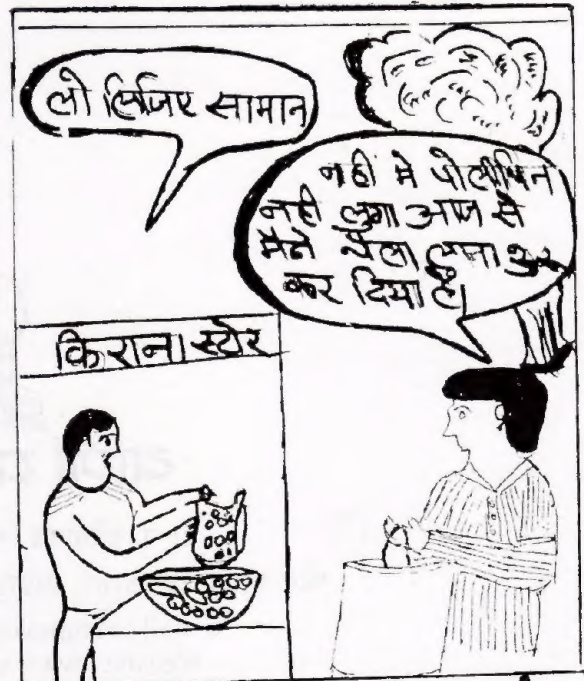 लो लिजिए सामान
नही मे पोलीथिन
नही लुगा आज से
मैने थैला लाना शुरू
कर दिया है।
किराना स्टोर